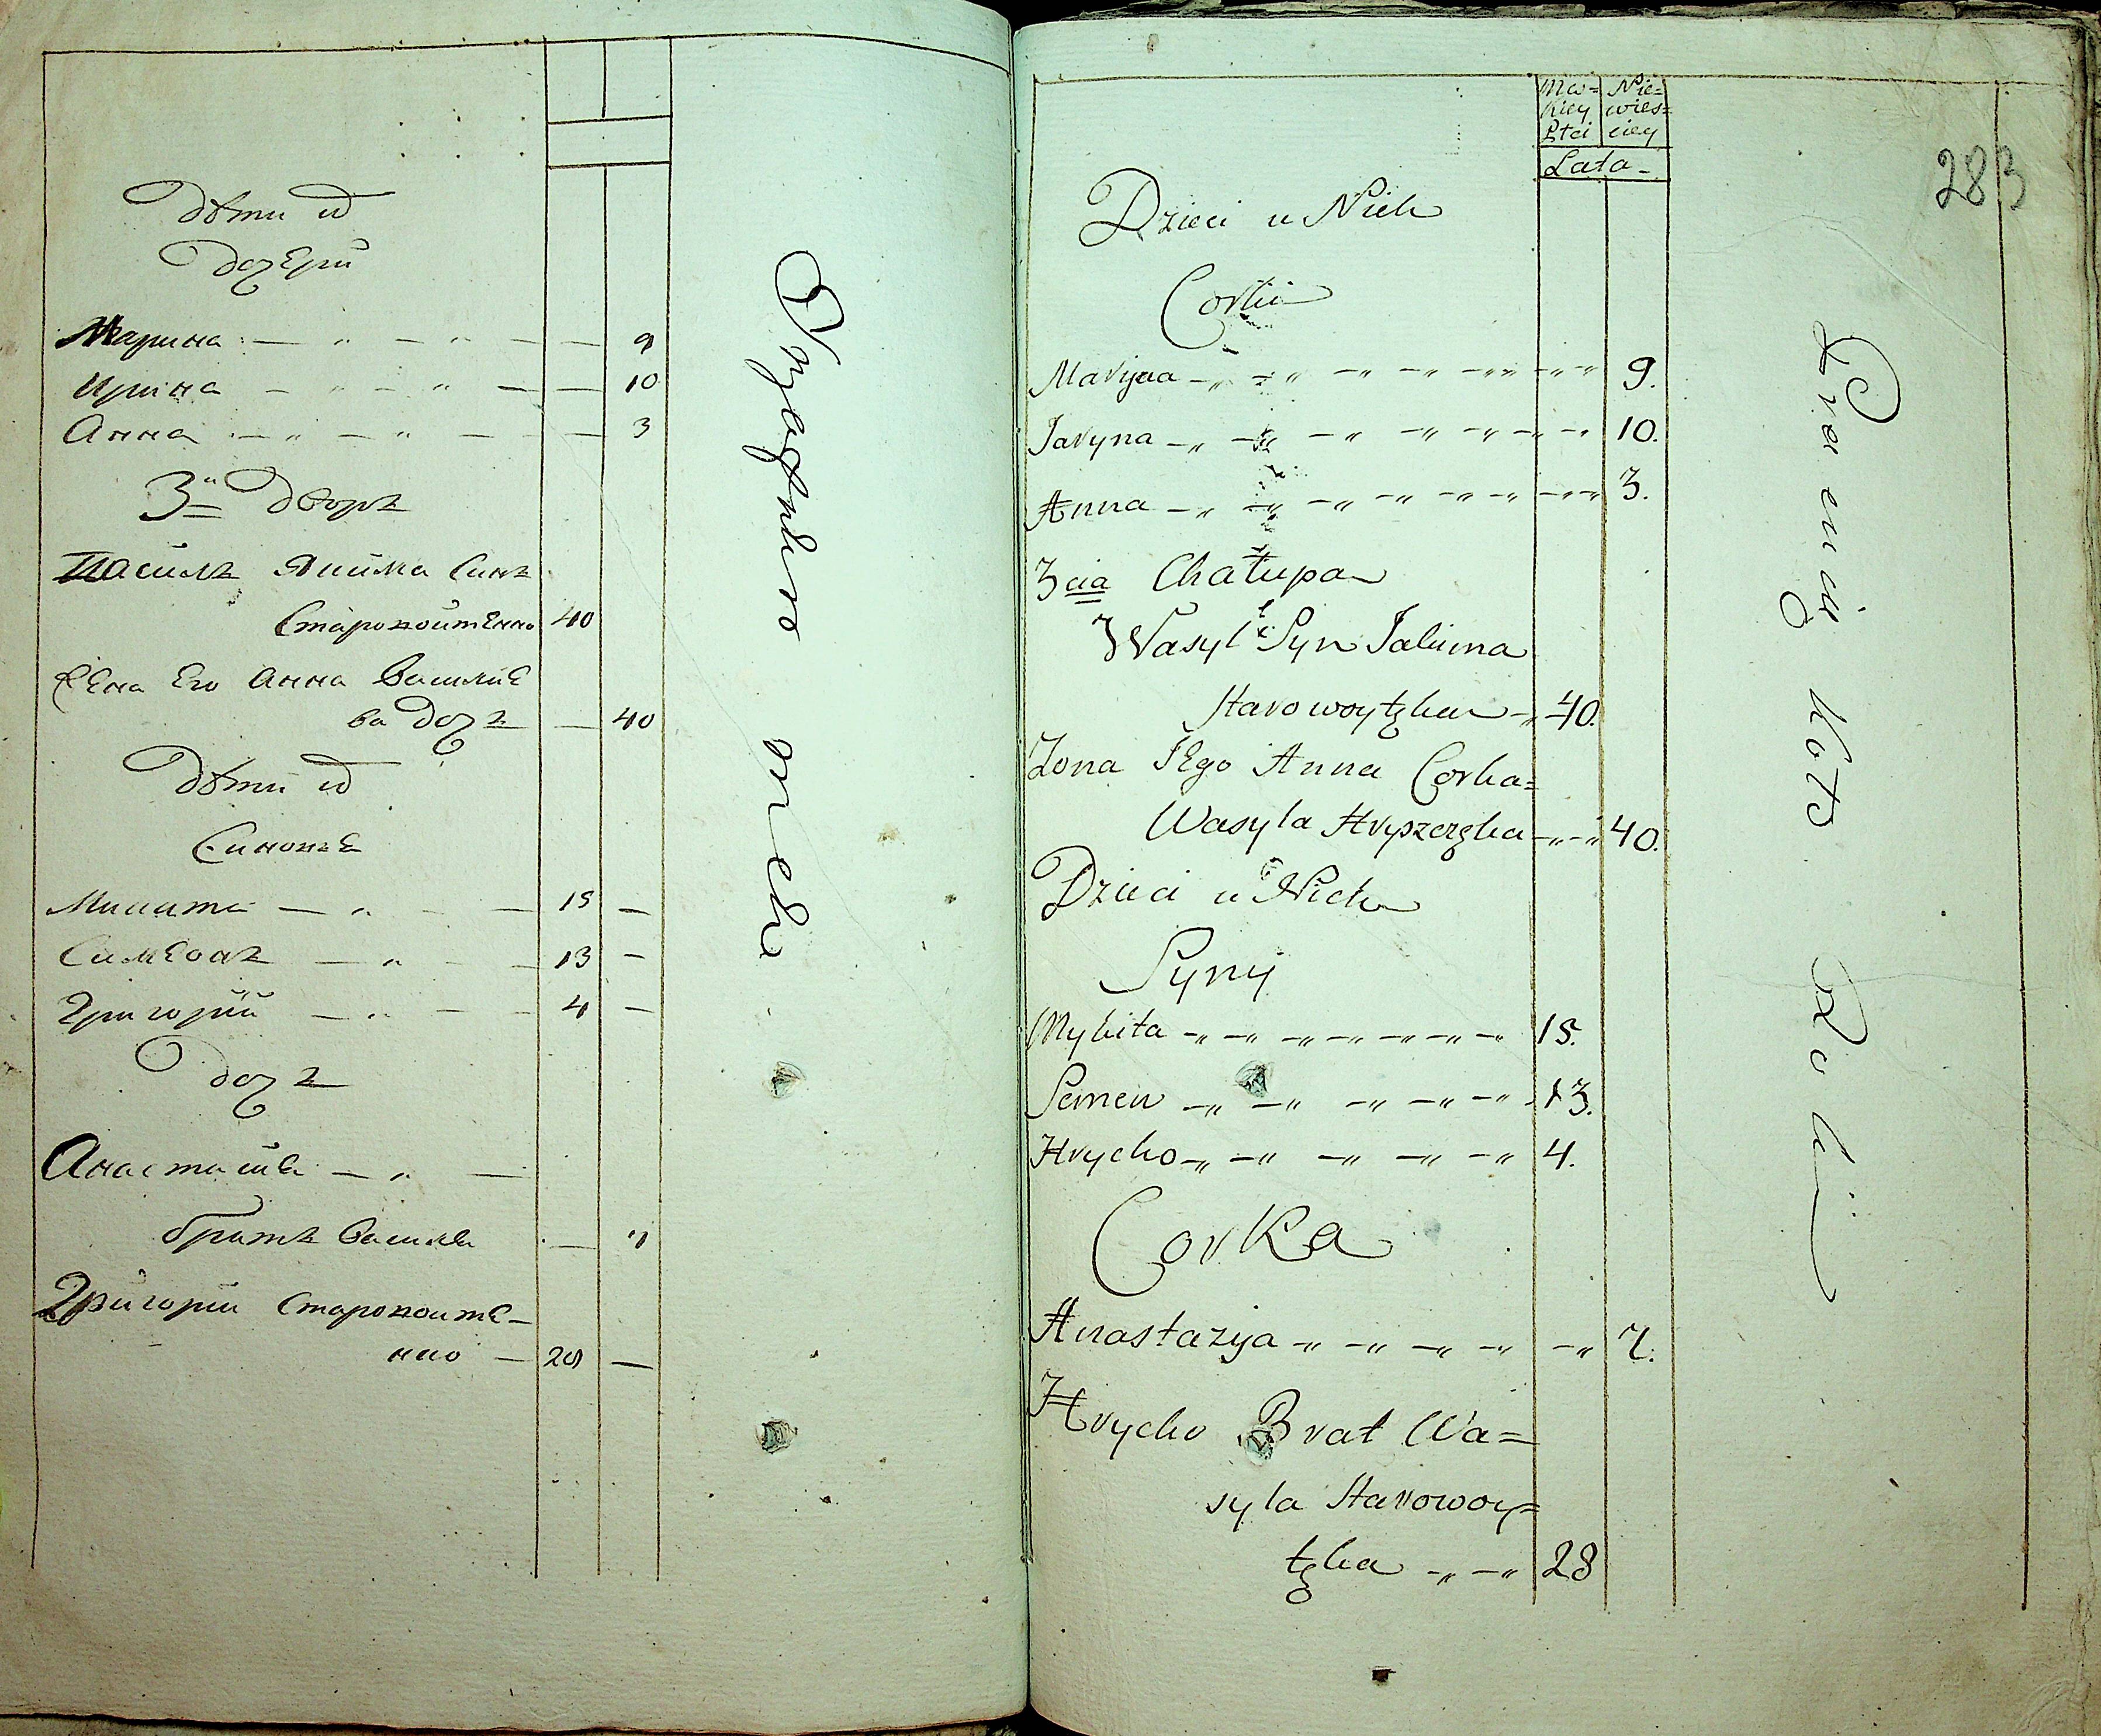 Дѣти ихъ
Дочери
Марина 9
Ирина 10
Анна 3
3й дворъ
Василь Якима Синъ
Старовойтенко 40
Жена Его Анна Василие
ва Дочъ 40
Дѣти ихъ
Синовъе
Микита 15
Симеонъ 13
Григорій 4
Дочъ
Анастасия
братъ василя 7
Григорий Старовойте-
нко 28
283
Mes=
kiey
Płci
Nie=
wies=
ciey
Lata
Dzieci u Nich
Corki
Maryna 9.
Jaryna 10.
Anna 3.
3cia Chałupa
Wasyl Syn Jakima
Starowoytzka 40.
Zona Jego Anna Corka=
Wasyla Hryszczka 40.
Dzieci u Nich
Syny
Mykita 15.
Semen 13.
Hrycko 4.
Corka
Anastazya 7.
Hrycko Brat Wa=
syla Starowoy=
tzka 28